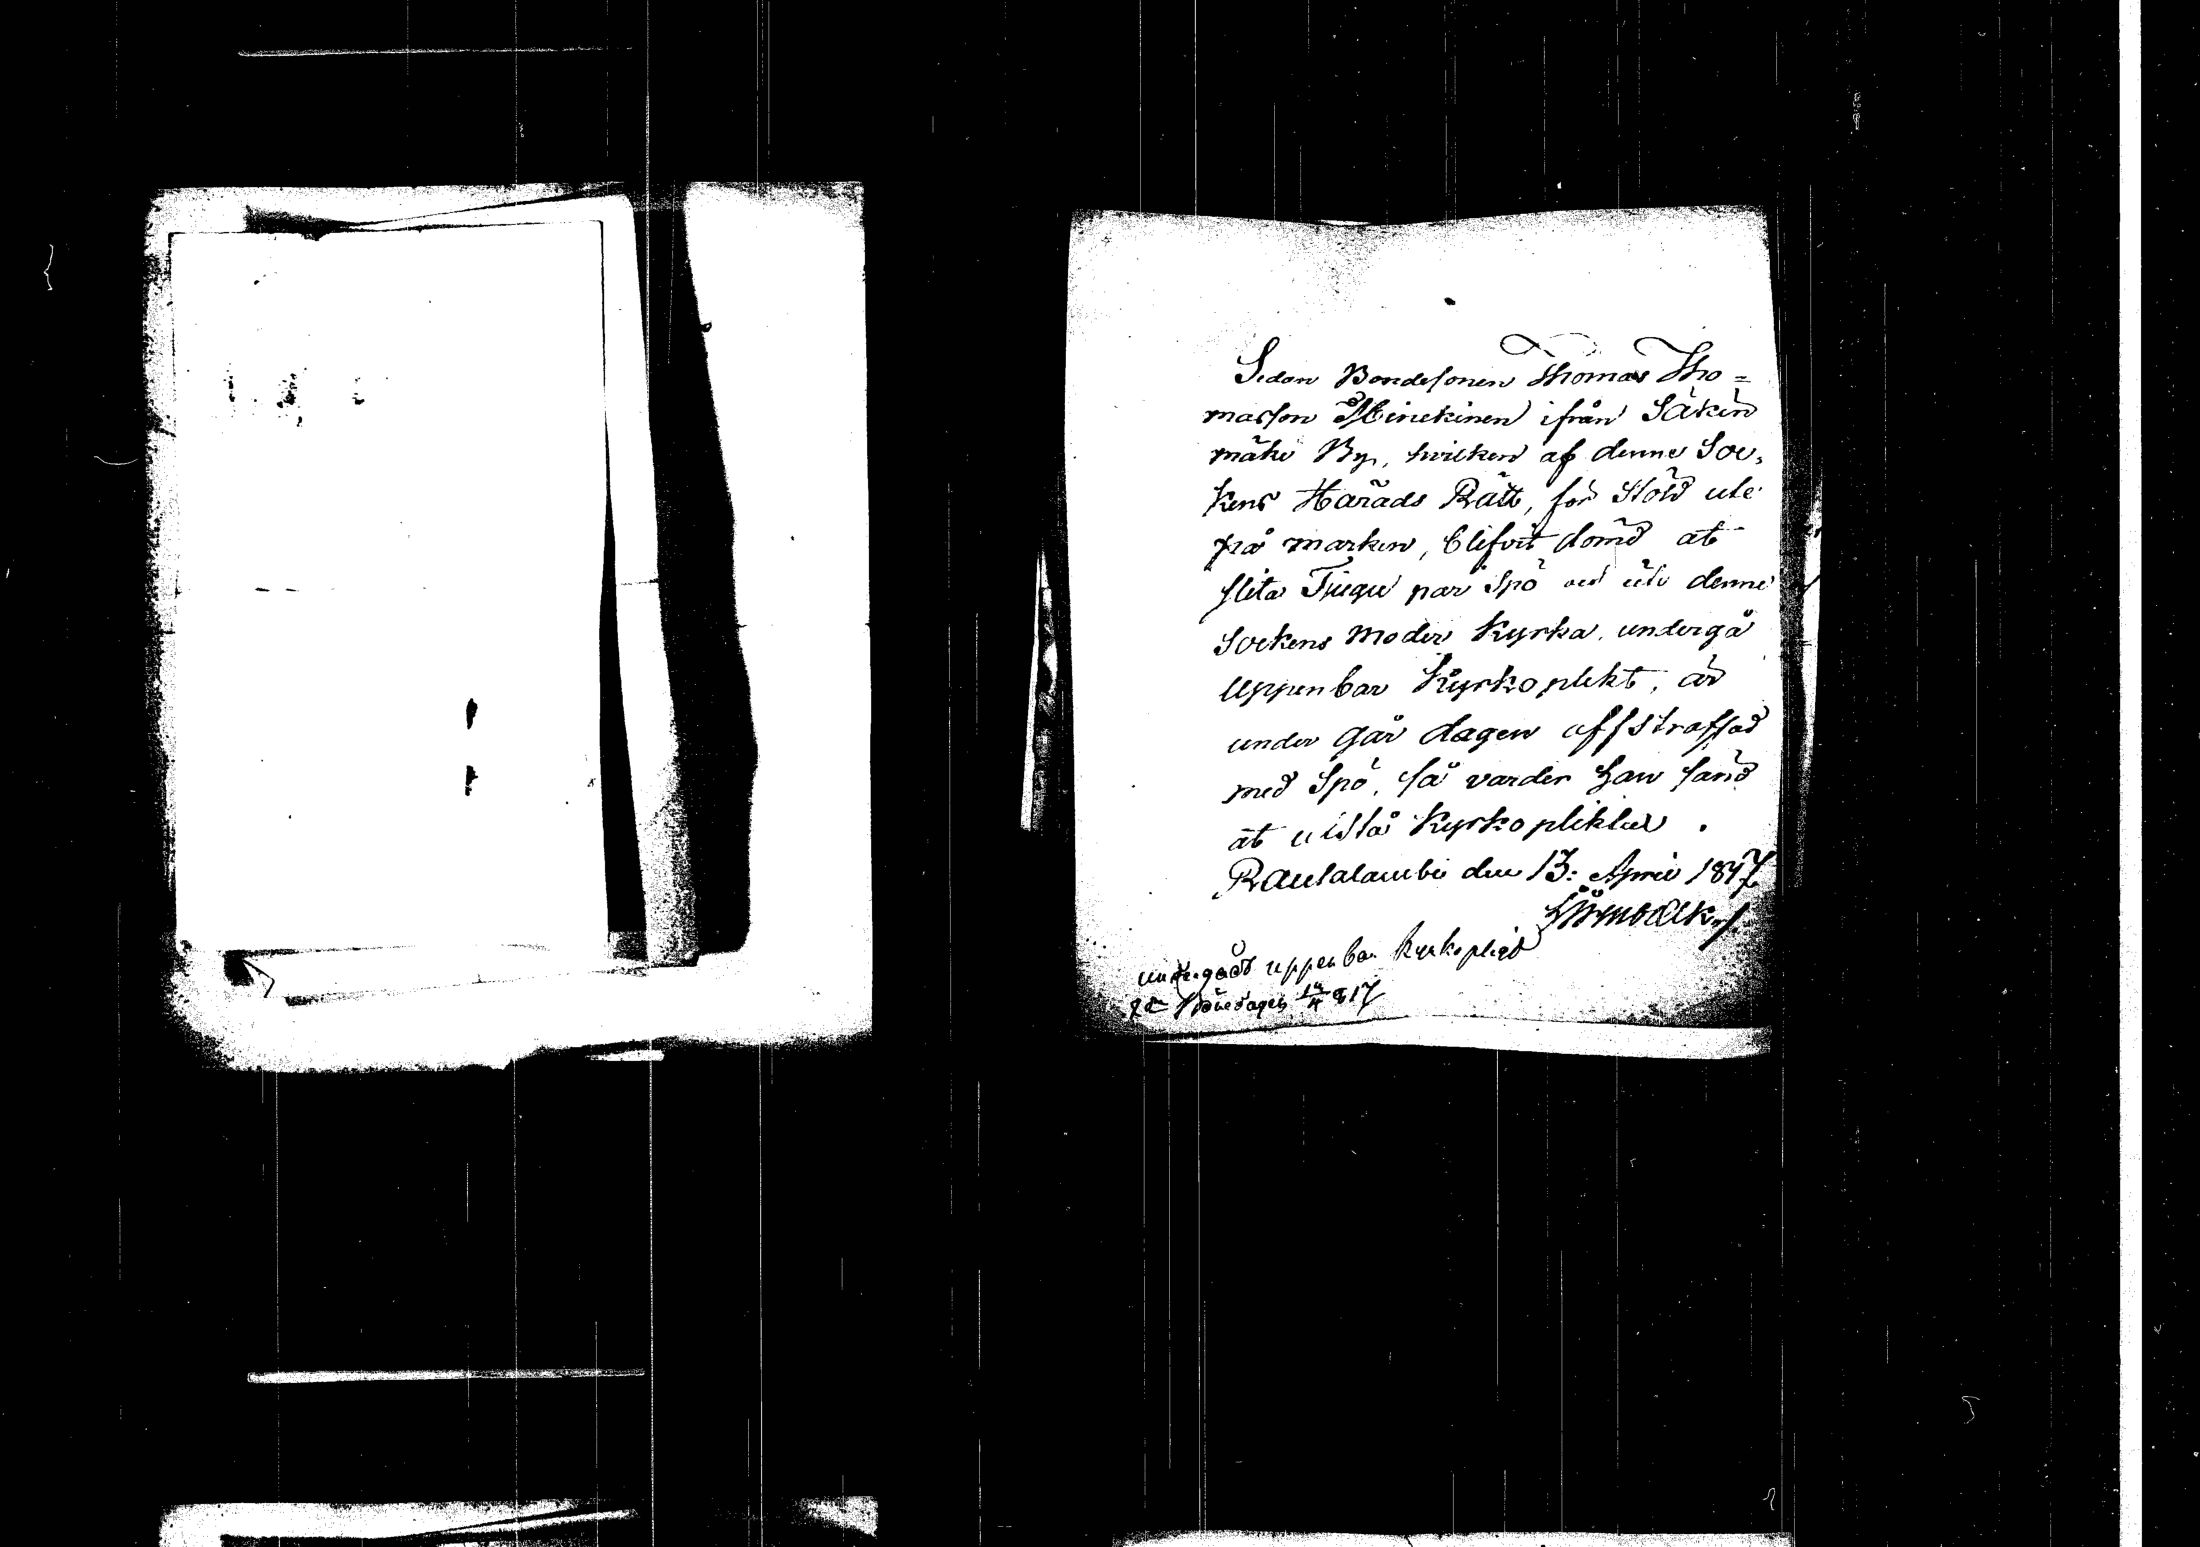 Sedan Bondesonen Thomas Tho=
masson Minekinen ifrån Säkin
mäki By, hvilken af denne Soc,
kens Härads Rätt, för Stöld ute
på marken, blifvit dömd at
slita Tiugu par Spö och uti denne
Sockens Moder Kyrka, undergå
Uppenbar Kyrkoplikt, är
under går dagen affstraffad
med Spö, så varder han sänd
at utstå Kyrkoplikten.
Rautalambi den 13: April 1817
undergådt uppenbar kyrkopligt
Bönedagen 817